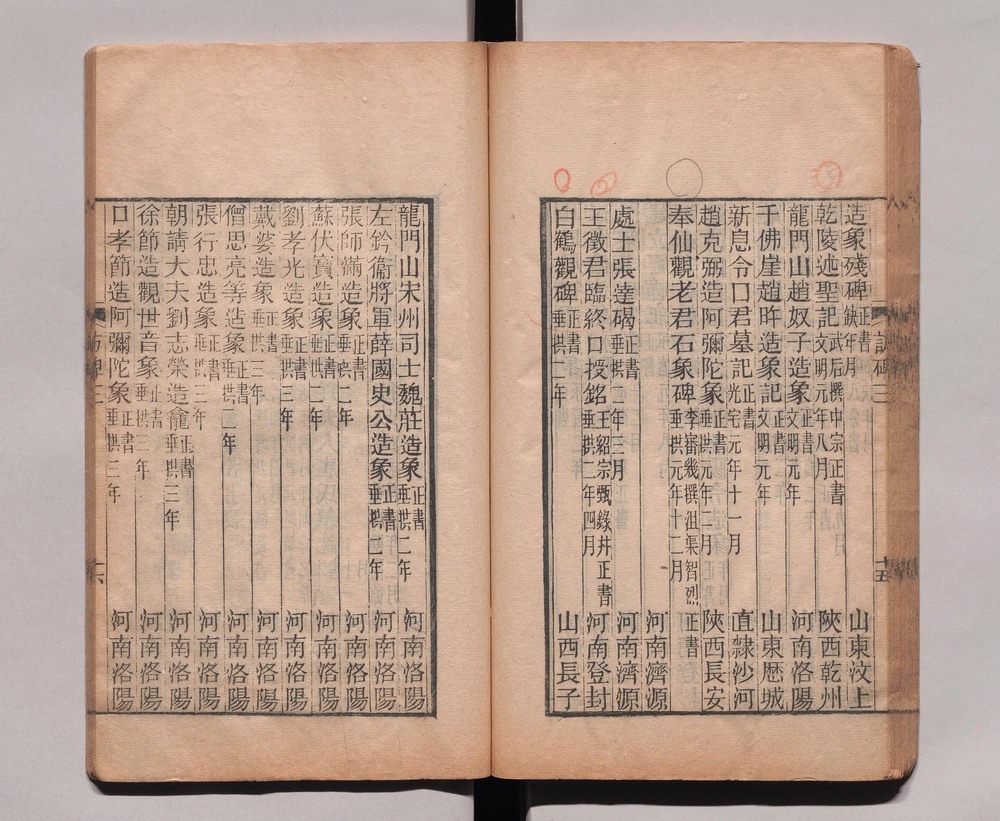 造象殘碑 正書 缺年月 山東汶上
乾陵述聖記 武后撰中宗正書 文明元年八月 陝西乾州
龍門山趙奴子造象 正書 文明元年 河南洛陽
千佛崖趙昨造象記 正書 文明元年 山東歷城
新息令口君墓記 正書 光宅元年十一月 直隸沙河
趙克弼造阿彌陀象 正書 垂拱元年二月 陝西長安
奉仙觀老君石象碑 李審幾撰沮渠智烈正書 垂拱元年十二月 河南濟源
處士張達碣 正書 垂拱二年三月 河南濟源
王徵君臨終口授銘 王紹宗甄錄并正書 垂拱二年四月 河南登封
白鶴觀碑 正書 垂拱二年 山西長子
龍門山宋州司士魏莊造象 正書 垂拱二年 河南洛陽
左鈐衞將軍薛國史公造象 正書 垂拱二年 河南洛陽
張師滿造象 正書 垂拱二年 河南洛陽
蘇伏寶造象 正書 垂拱二年 河南洛陽
劉孝光造象 正書 垂拱三年 河南洛陽
戴婆造象 正書 垂拱三年 河南洛陽
僧思亮等造象 正書 垂拱二年 河南洛陽
張行忠造象 正書 垂拱二年 河南洛陽
朝請大夫劉志榮造龕 正書 垂拱三年 河南洛陽
徐節造觀世音象 正書 垂拱三年 河南洛陽
口孝節造阿彌陀象 正書 垂拱三年 河南洛陽
訪碑三
十五
十六